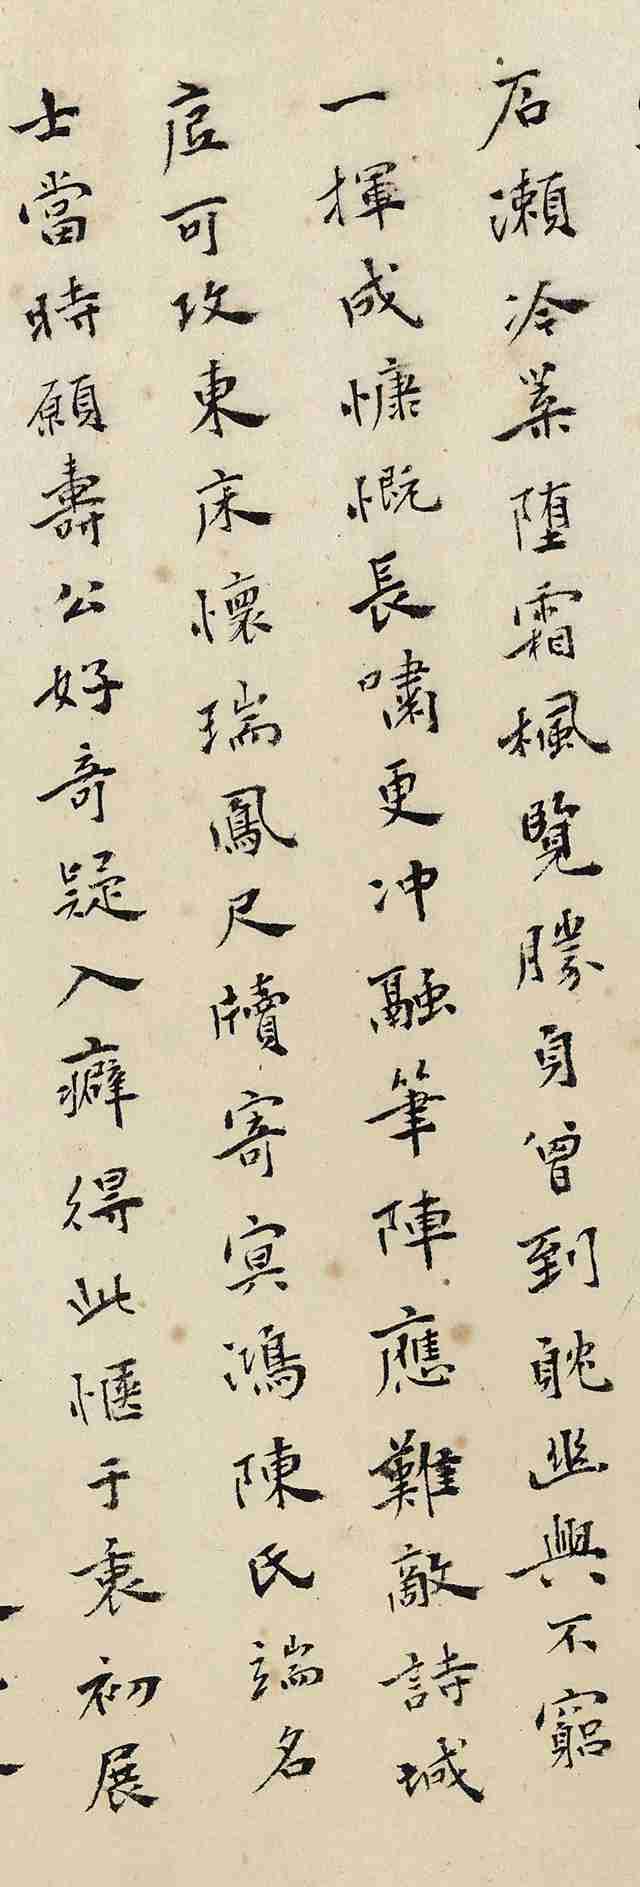 石瀨冷葉墮霜楓覽勝身曾到躭幽興不窮
一揮成慷慨長嘯更冲融筆陣應難敵詩城
可攻東床懷瑞鳳尺牘寄冥鴻陳氏端名
士當時願壽公好奇疑入癖得此愜于衷初展